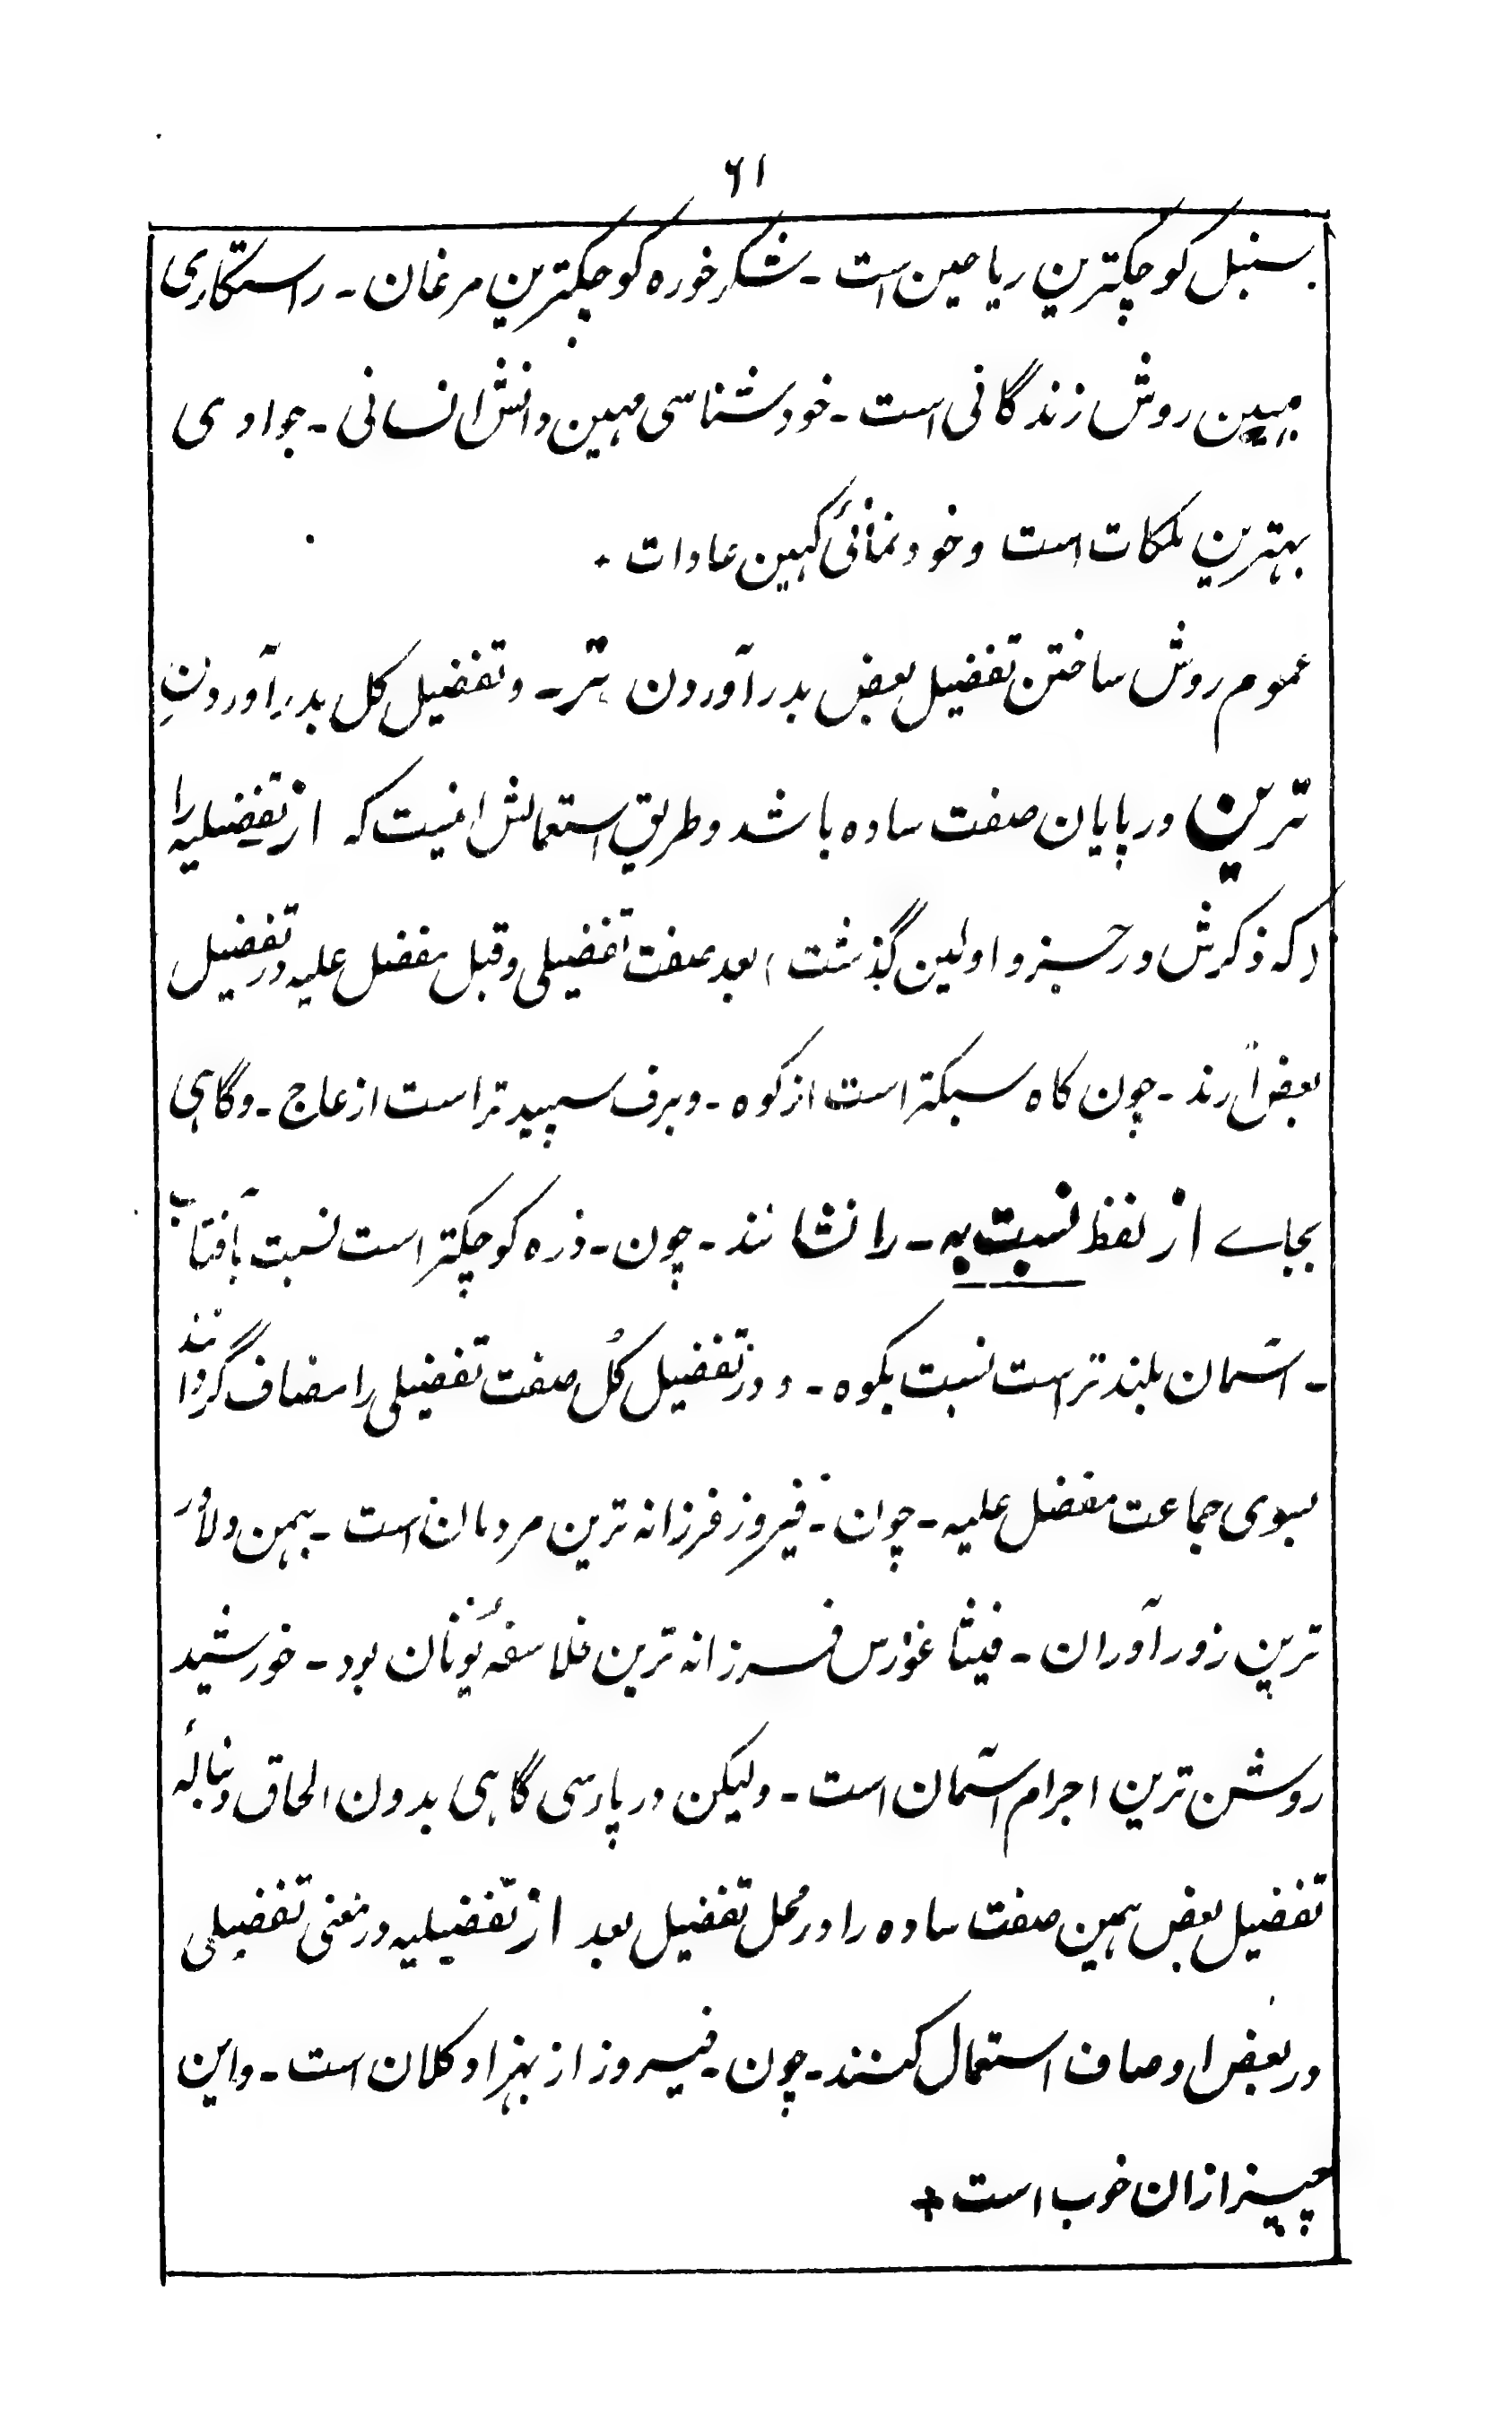 ٦١
سنبل کوچکترین ریاحین است - شکر خوره کوچکترین مرغان - راستکاری
مهین روش زندگانی است - خودشناسی مهین دانش انسانی - جوادی
بهترین ملکات است و خودنمائی کهین عادات ۰
عموم روش ساختن تفضیل بعض بدرآوردن تر - و تفضیل کل بدرآوردنِ
ترین در پایان صفت ساده باشد و طریق استعمالش اینست که از تفضیلیه را
(که ذکرش در جزو اولین گذشت) بعد صفت تفضیلی و قبل مفضل علیه در تفضیل
بعض آرند - چون کاه سبکتر است از کوه - و برف سپید تر است از عاج - و گاهی
بجاے از لفظ نسبت به - را نشانند - چون - ذره کوچکتر است نسبت بآفتاب
- آسمان بلند تر است نسبت بکوه - و در تفضیل کُل صفت تفضیلی را مضاف گردانند
بسوی جماعت مفضل علیه - چون - فیروز فرزانه ترین مردمان است - بهمن دلاور
ترین زورآوران - فیثاغورس فرزانه ترین فلاسفهٔ یونان بود - خورشید
روشن ترین اجرام آسمان است - ولیکن در پارسی گاهی بدون الحاق دنبالهٔ
تفضیل بعض همین صفت ساده را در محل تفضیل بعد از تفضیلیه در معنی تفضیلی
در بعض اوصاف استعمال کنند - چون - فیروز از بهزاد کلان است - و این
چیز ازان خوب است +